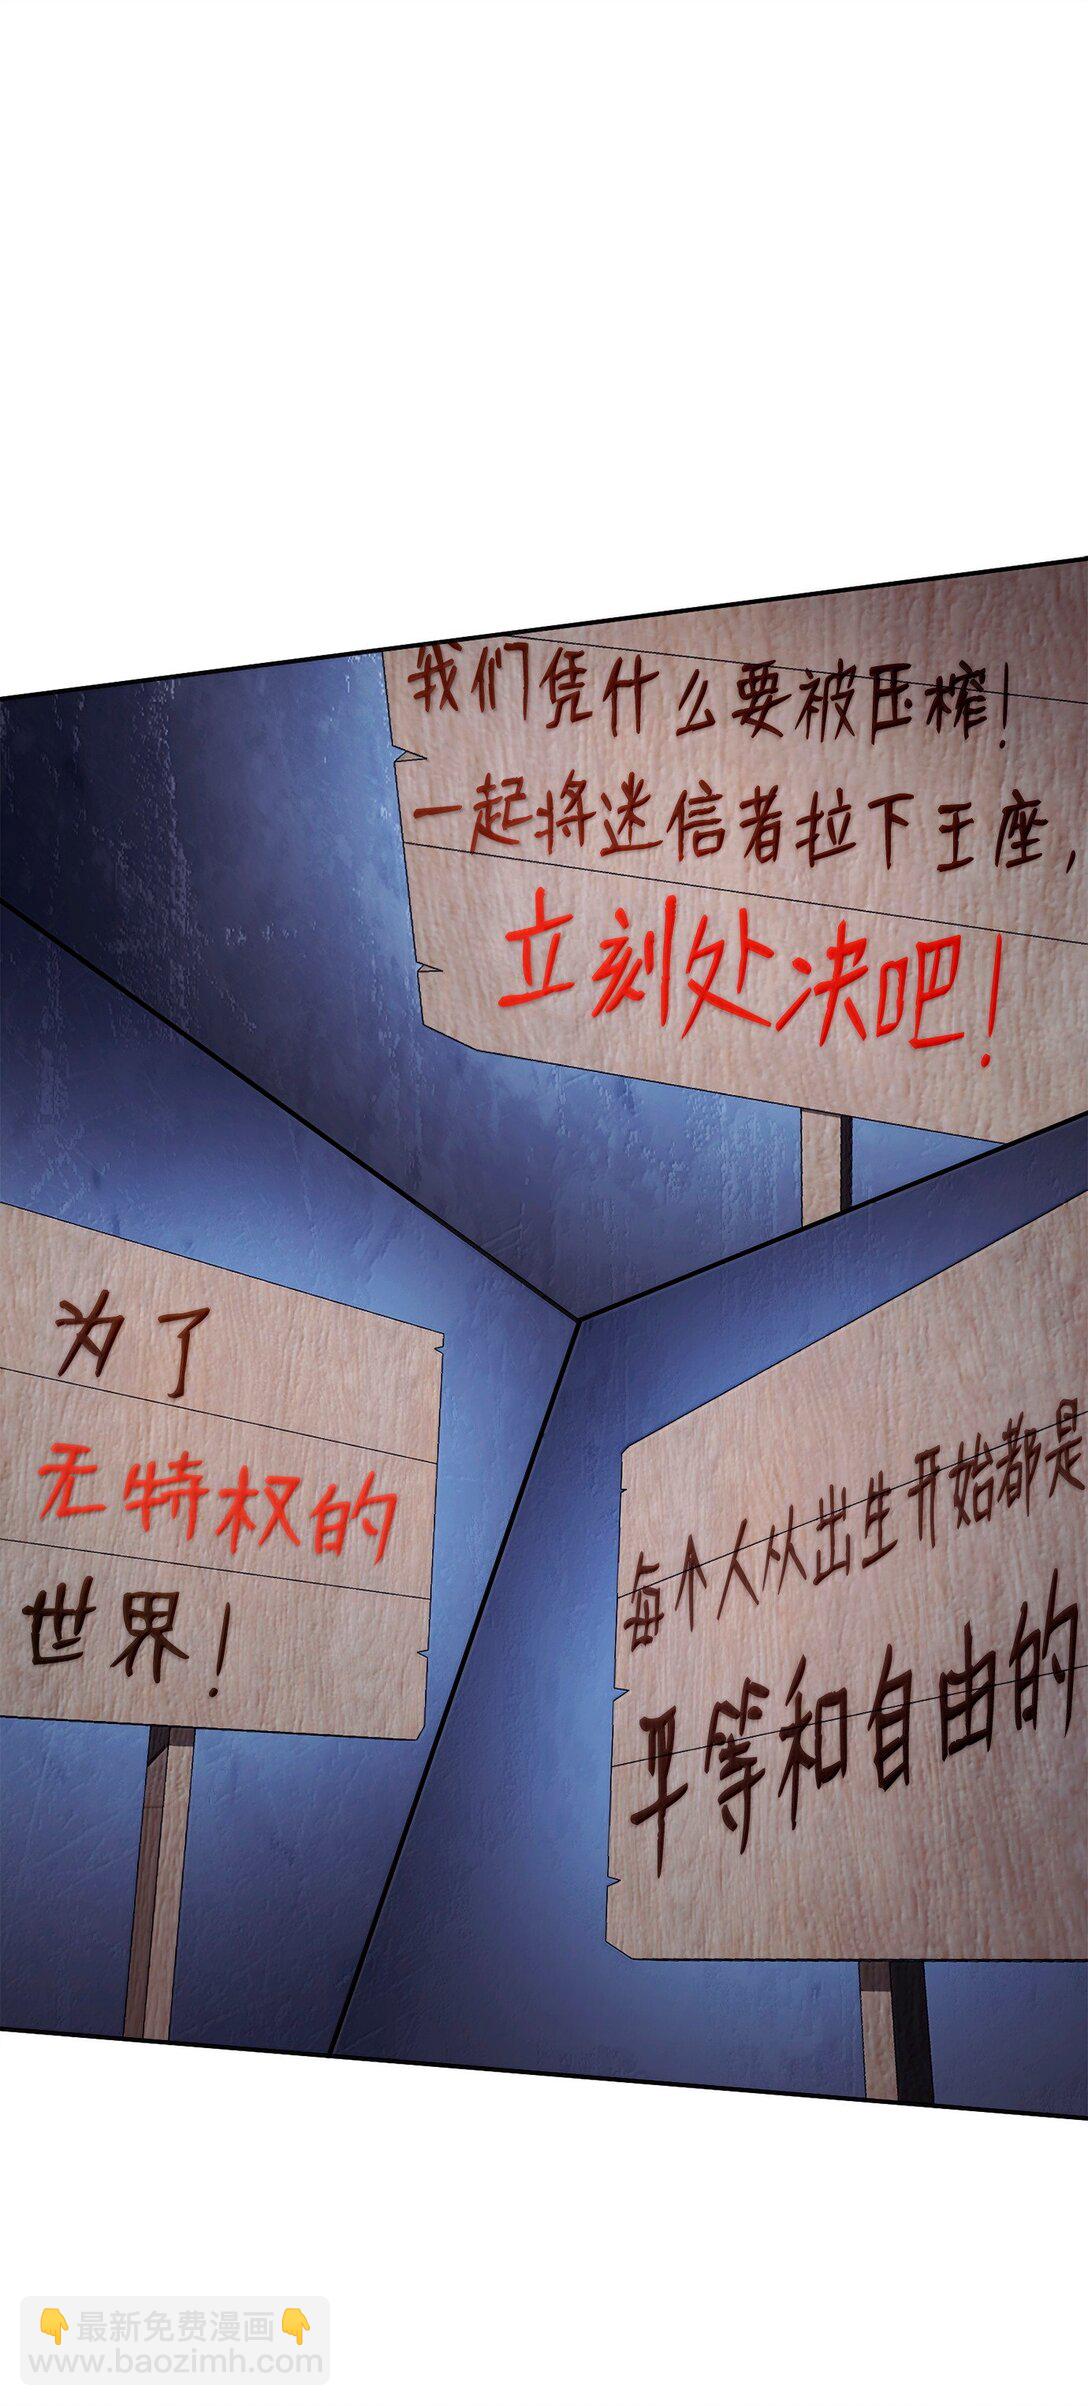 我们凭什么要被压榨！
一起将迷信者拉下王座，
立刻处决吧！
为了
无特权的
世界！
每个人从出生开始都是
平等和自由的
👇最新免费漫画👇
www.baozimh.com